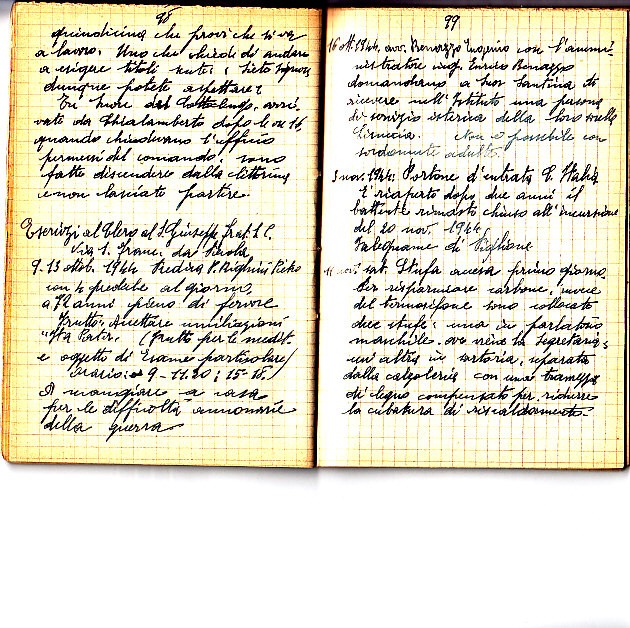 98
quindicina che provi che si va
a lavoro. Uno che chiede di andare
a esigere titoli
dunque potete aspettare?
Tre Suore del Cottolengo, arri-
vate da Chialamberto dopo le ore 16,
quando chiudevano l'ufficio
permessi del comando, sono
fatte discendere dalla littorina
e non lasciate partire
Esercizi al Clero al S. Giuseppe Frat. S. C.
Via S. Franc. da Paola
9-13 ottob. 1944 Predica P. Righini Pietro
con 4 prediche al giorno,
a 72 anni pieno di fervore
Frutto: Accettare umiliazioni
"Ita Pater". (Frutto per le medit.
e oggetto di Esame particolare)
Orario: 9-11.20; 15-18.
A mangiare a casa
per le difficoltà annonarie
della guerra
99
16 ott. 1944. avv. Benazzo Eugenio con l'ammi-
nistratore ing. Enrico Benazzo
domandano a Suor Santina di
ricevere nell'Istituto una persona
di servizio isterica della loro sorella
Non è possibile con
sordomute adulte.
3 nov. 1944. Portone d'entrata C. Italia
È riaperto dopo due anni il
battente rimasto chiuso all'incursione
del 20 nov. 1944
Falegname di Piglione
11 nov. sab. Stufa accesa primo giorno.
Per risparmiare carbone, invece
del termosifone sono collocate
due stufe: una in parlatorio
maschile, ove viene la Segretaria;
un'altra in sartoria, separata
dalla calzoleria con una tramezza
di legno compensato per ridurre
la cubatura di riscaldamento.